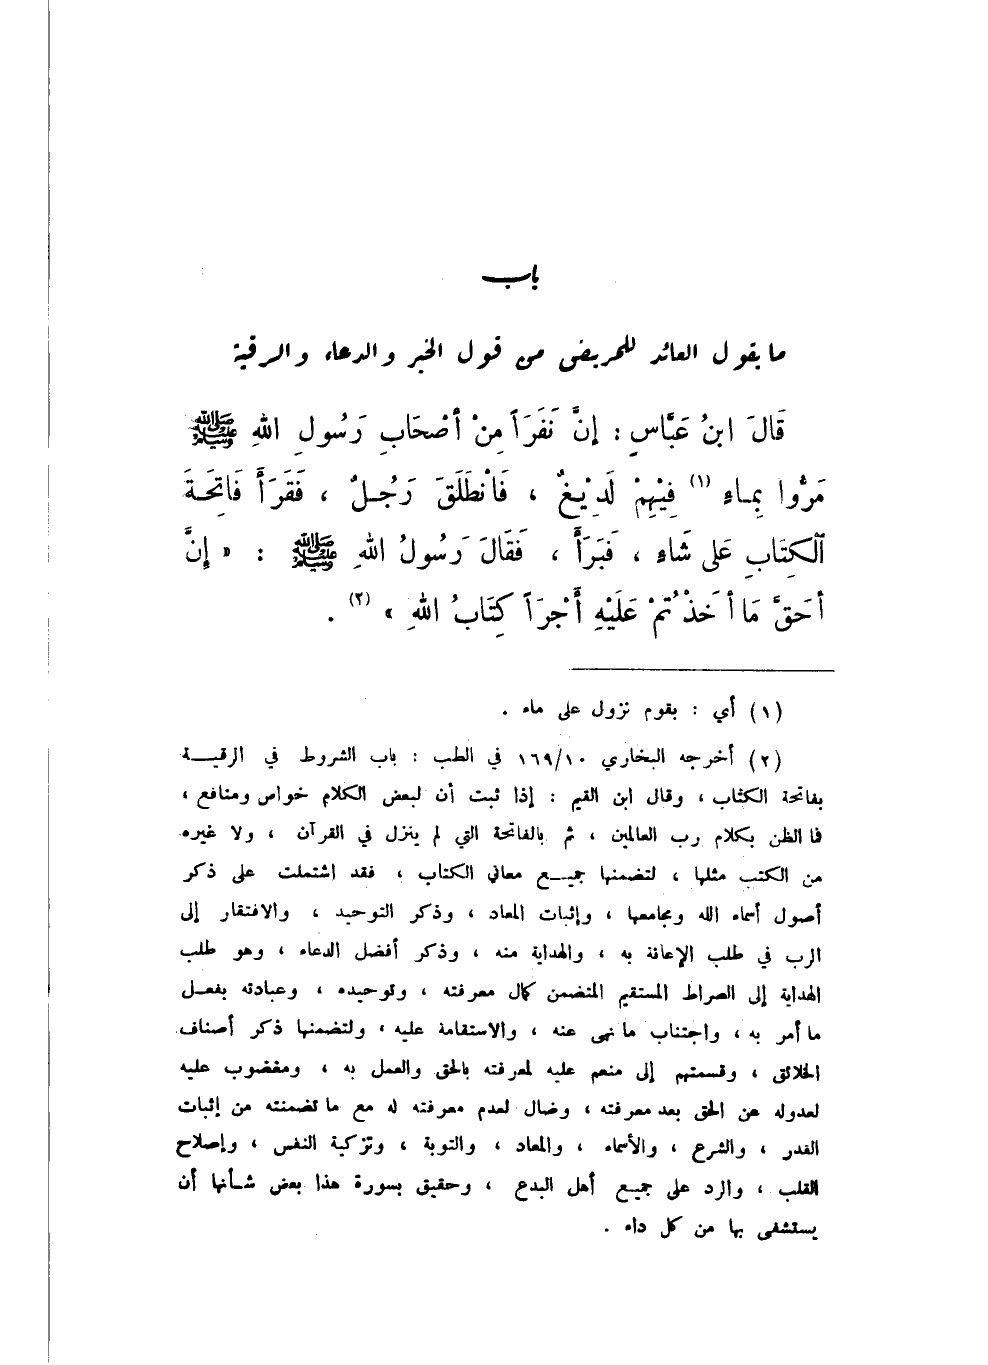 باب
ما يقول العائد للمريض من قول الخير والدعاء والرقية
قَالَ ابنُ عَبَّاسٍ : إنَّ نَفَرَاً مِنْ أصْحَابِ رَسُولِ اللهِ ﷺ
مَرُّوا بِمـاءٍ (١) فِيْهِمْ لَدِيْغٌ ، فَانْطَلَقَ رَجُـلٌ ، فَقَرَأَ فَاتِحَـةَ
ٱلْكِتَابِ عَلى شَاءٍ ، فَبَرَأَ ، فَقَالَ رَسُولُ اللهِ ﷺ : « إنَّ
أحَقَّ مَا أخَذْتُمْ عَلَيْهِ أَجْرَاً كِتَابُ اللهِ » (٢) .
(١) أي : بقوم نزول على ماء .
(٢) أخرجه البخاري ١٦٩/١٠ في الطب : باب الشروط في الرقيـــة
بفاتحة الكتاب ، وقال ابن القيم : إذا ثبت أن لبعض الكلام خواص ومنافع ،
فما الظن بكلام رب العالمين ، ثم بالفاتحة التي لم ينزل في القرآن ، ولا غيره
من الكتب مثلها ، لتضمنها جميـــع معاني الكتاب ، فقد اشتملت على ذكر
أصول أسماء الله ومجامعها ، وإثبات المعاد ، وذكر التوحيد ، والافتقار إلى
الرب في طلب الإعانة به ، والهداية منه ، وذكر أفضل الدعاء ، وهو طلب
الهداية إلى الصراط المستقيم المتضمن كمال معرفته ، وتوحيده ، وعبادته بفعـل
ما أمر به ، واجتناب ما نهى عنه ، والاستقامة عليه ، ولتضمنها ذكر أصناف
الخلائق ، وقسمتهم إلى منعم عليه لمعرفته بالحق والعمل به ، ومغضوب عليه
لعدوله عن الحق بعد معرفته ، وضال لعدم معرفته له مع ما تضمنته من إثبات
القدر ، والشرع ، والأسماء ، والمعاد ، والتوبة ، وتزكية النفس ، وإصلاح
القلب ، والرد على جميـع أهل البدع ، وحقيق بسورة هذا بعض شـأنها أن
يستشفى بها من كل داء .